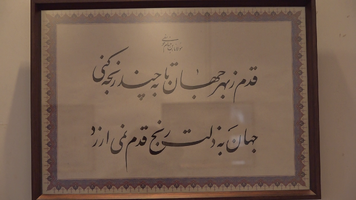 قدم ز بهر جهان تا به چند رنجه کنی
جهان به ذلت رنج قدم نمی ارزد